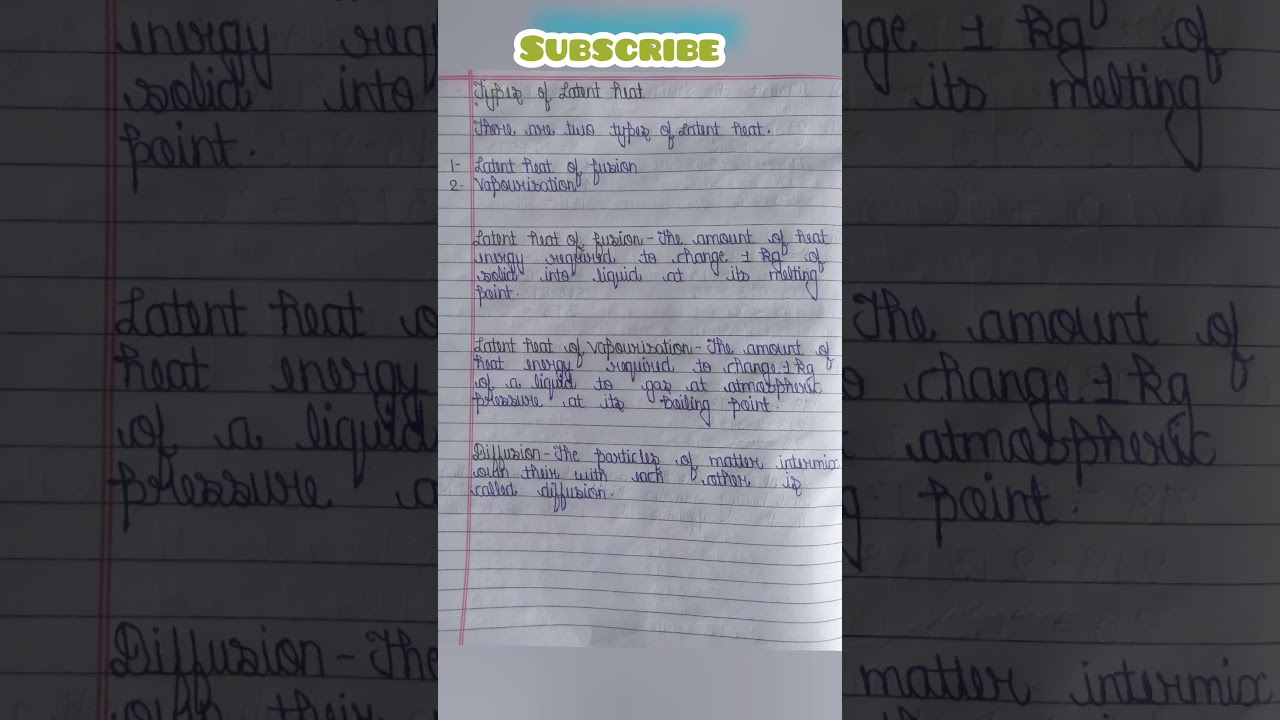 SUBSCRIBE
Types of Latent heat
There are two types of Latent heat.
1- Latent heat of fusion
2- Vapourisation
Latent heat of fusion - The amount of heat
energy required to change 1 kg of
solid into liquid at its melting
point.
Latent heat of Vapourisation - The amount of
heat energy required to change 1 kg
of a liquid to gas at atmospheric
pressure at its boiling point.
Diffusion - The particles of matter intermix
with their with each other is
called diffusion.